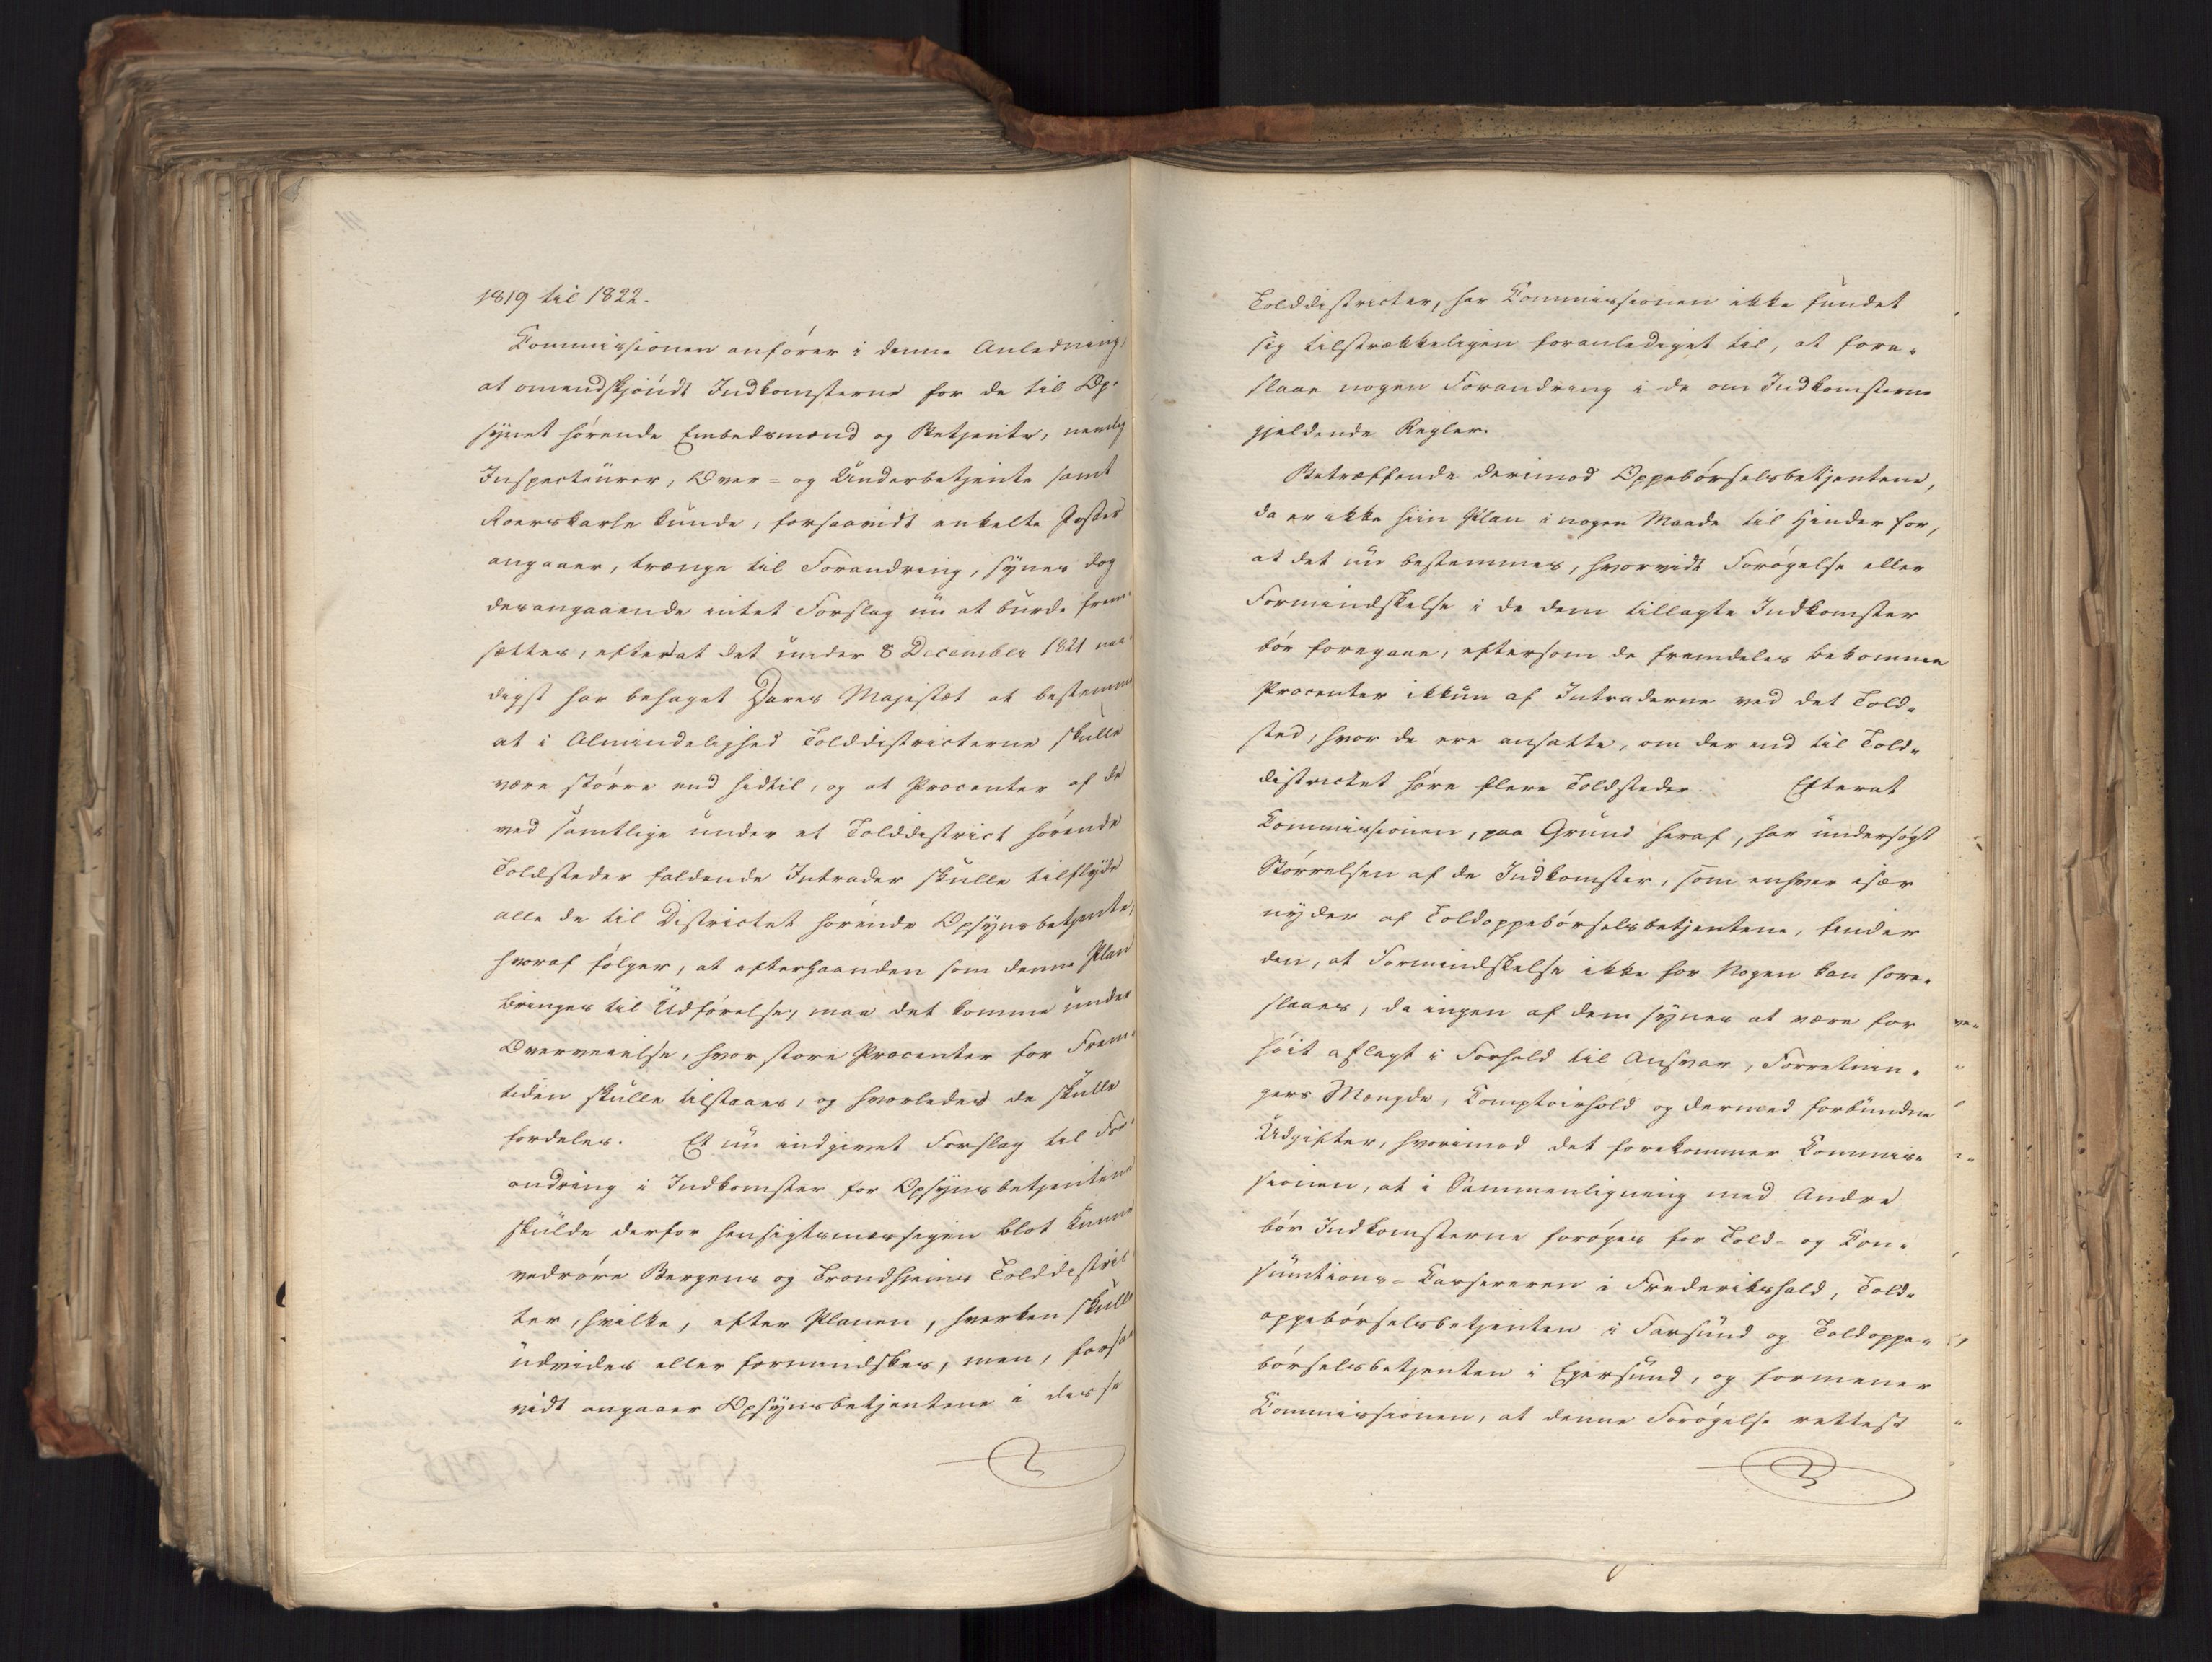 1819 til 1822.
Commissionen anfører i denne Anledning,
at omendskjøndt Indkomsterne for de til Op-
synet hørende Embedsmænd og Betjente, nemlig
Inspecteurer, Over- og Underbetjente samt
Roerskarle kunde, forsaavidt enkelte Poster
angaaer, trænge til Forandring, synes dog
desangaaende intet Forslag nu at burde frem-
sættes, efterat det under 8 December 1821 naa-
digst har behaget Deres Majestæt at bestemme
at i Almindelighed Tolddistricterne skulle
være større end hidtil, og at Procenter af de
ved samtlige under et Tolddistrict hørende
Toldsteder faldende Intrader skulle tilflyde
alle de til Districtet hørende Opsynsbetjente,
hvoraf følger, at efterhaanden som denne Plan
bringes til Udførelse, maa det komme under
Overveielse, hvor store Procenter for Frem-
tiden skulle tilstaaes, og hvorledes de skulle
fordeles. Et nu indgivet Forslag til For-
andring i Indkomster for Opsynsbetjentene
skulde derfor hensigtsmæssigen blot kunne
vedrøre Bergens og Trondhjems Tolddistric-
ter, hvilke, efter Planen, hverken skulle
udvides eller formindskes, men, forsa-
vidt angaaer Opsynsbetjentene i disse
Tolddistricter, har Commissionen ikke fundet
sig tilstrækkeligen foranlediget til, at fore-
slaae nogen Forandring i de om Indkomsterne
gjeldende Regler.
Betræffende derimod Oppebørselsbetjentene,
da er ikke hiin Plan i nogen Maade til Hinder for,
at det nu bestemmes, hvorvidt Forøgelse eller
Formindskelse i de dem tillagte Indkomster
bør foregaae, eftersom de fremdeles bekomme
Procenter ikkun af Intraderne ved det Told-
sted, hvor de ere ansatte, om der end til Told-
districtet høre flere Toldsteder. Efterat
Commissionen, paa Grund heraf, har undersøgt
Størrelsen af de Indkomster, som enhver især
nyder af Toldoppebørselsbetjentene, finder
den, at Formindskelse ikke for Nogen kan fore-
slaaes, da ingen af dem synes at være for
høit aflagt i Forhold til Ansvar, Forretnin-
gers Mængde, Comptoirhold og dermed forbundne
Udgifter, hvorimod det forekommer Commis-
sionen, at i Sammenligning med Andre
bør Indkomsterne forøges for Told- og Con-
sumtions-Cassereren i Frederikshald, Told-
oppebørselsbetjenten i Farsund og Toldoppe-
børselsbetjenten i Egersund, og formener
Commissionen, at denne Forøgelse rettest